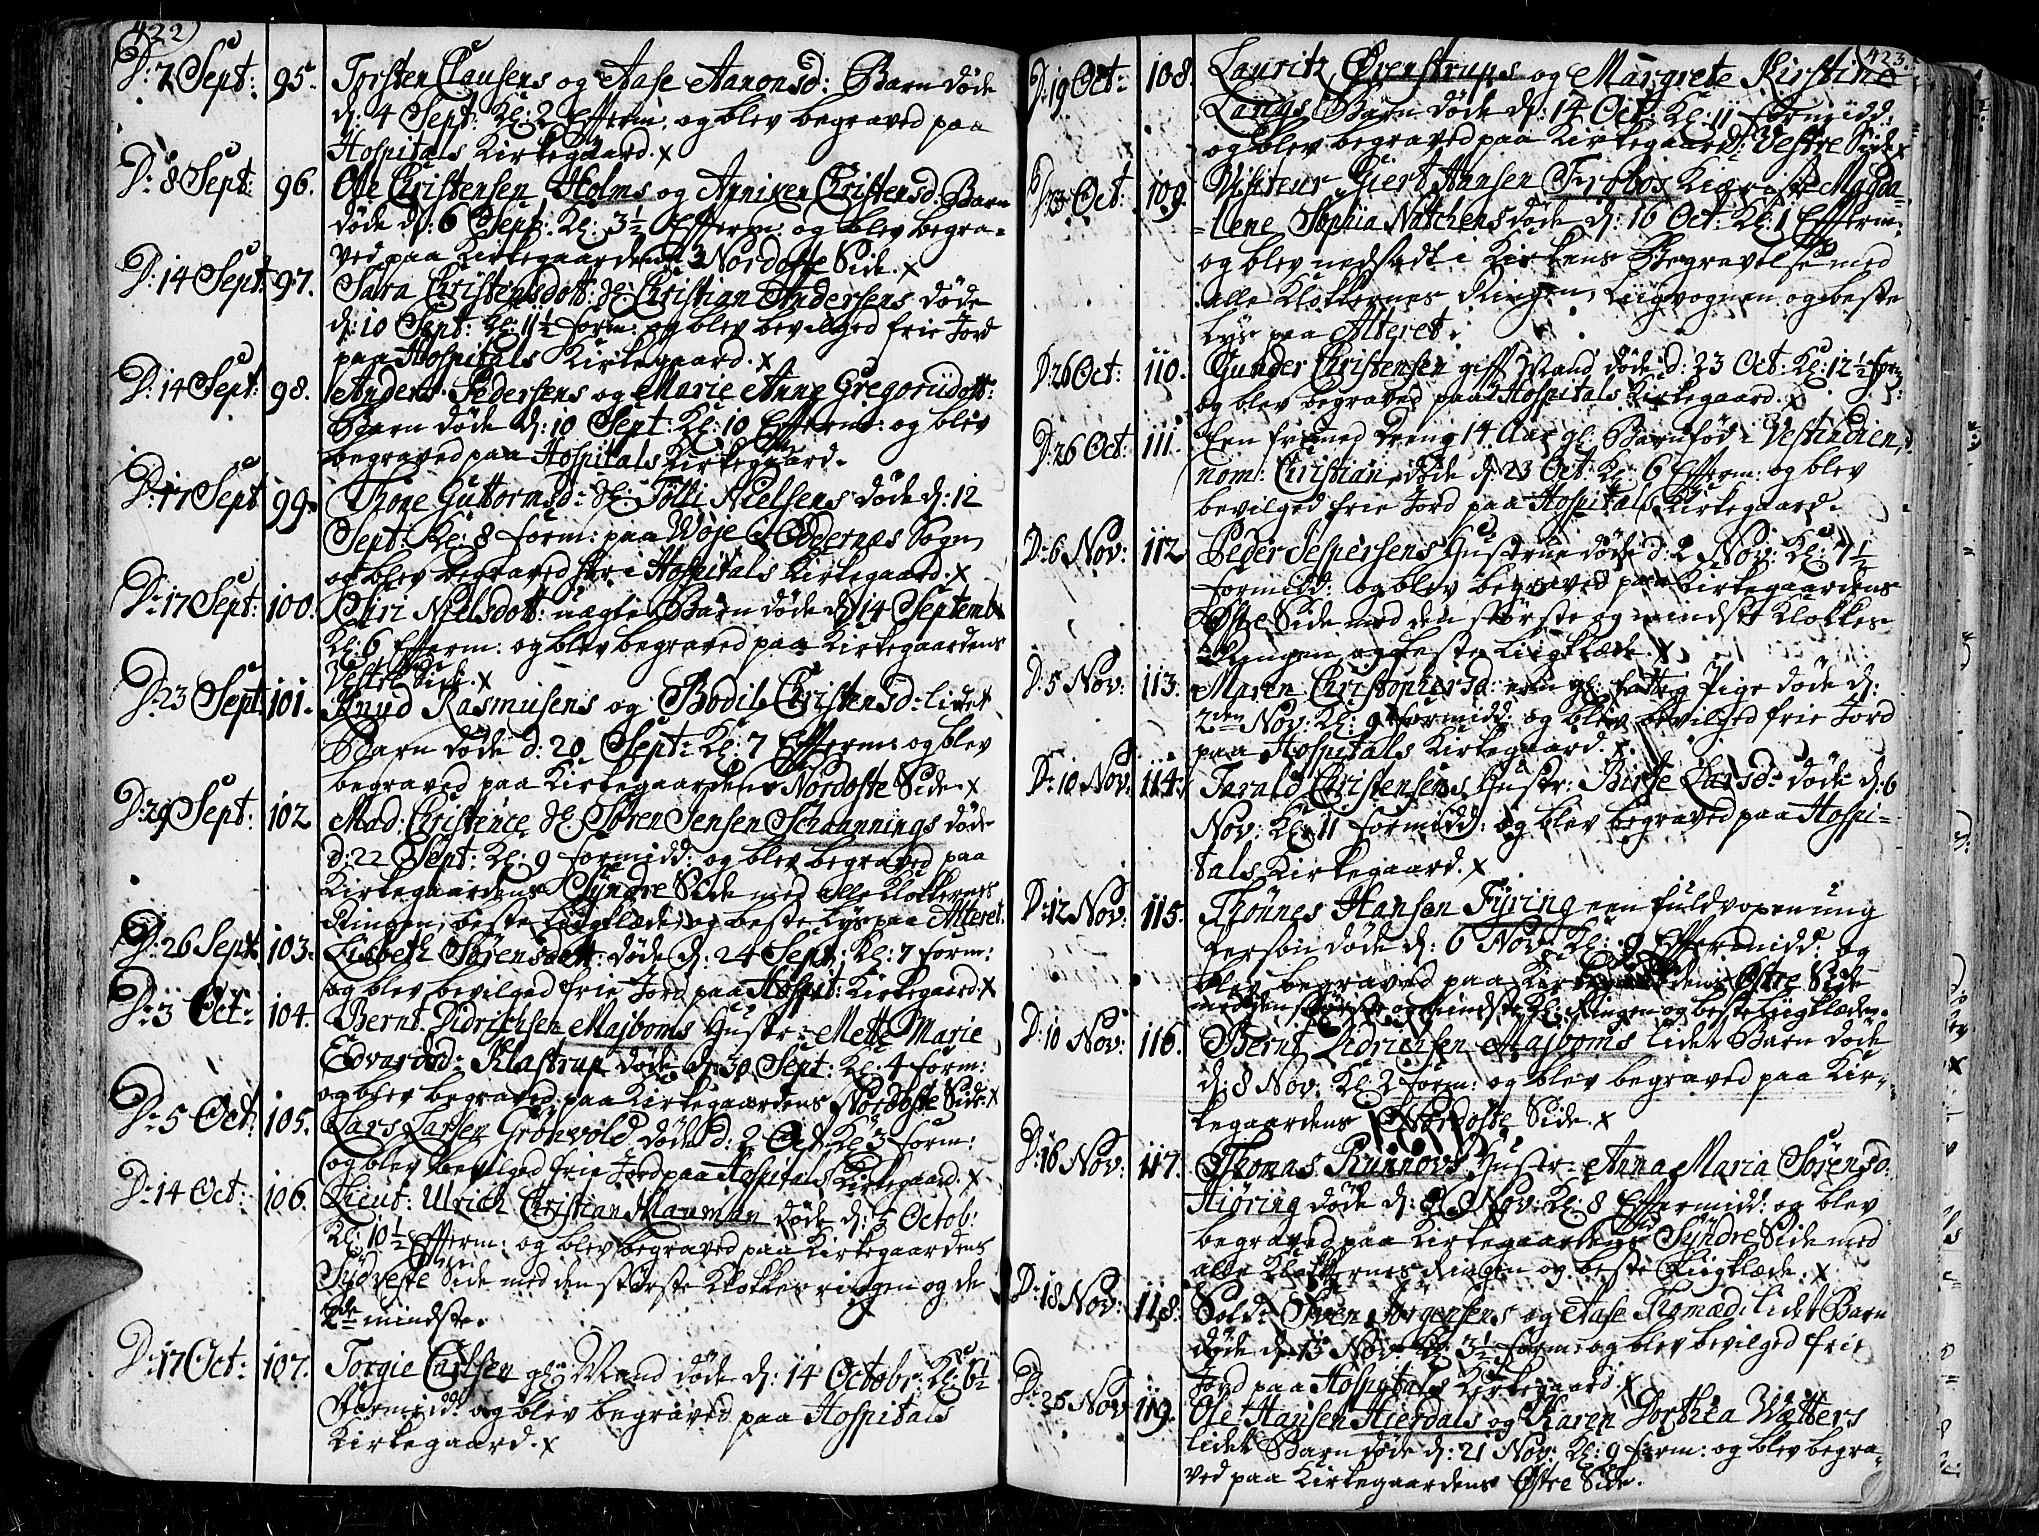 422
D: 7 Sept: 95. Torsten Clausens og Aase Aanonsd: Barn døde
d: 4 Sept: Kl: 2 Efterm: og blev begraved paa
Hospitals Kirkegaard. x
D: 8 Sept: 96. Ole Christensen Holms og Anniken Christensd. Barn
døde d: 6 Sept: Kl: 3½ Efterm: og blev begra-
ved paa Kirkegaardens Nordoste Side. x
D: 14 Sept: 97. Sara Christensdott: Christian Andersens døde
d: 10 Sept: Kl: 11½ form: og blev bevilged frie Jord
paa Hospitals Kirkegaard. x
D: 14 Sept: 98. Anders Pedersens og Marie Anne Gregoriidott:
Barn døde d: 10 Sept: Kl: 10 Efterm: og blev
begraved paa Hospitals Kirkegaard.
D: 17 Sept 99. Thore Guttormsd: Tølli Nielsens døde d: 12
Sept: Kl: 8 form: paa Woje i Oddernæs Sogn,
og blev begraved her i Hospitals Kirkegaard. x
D: 17 Sept: 100. Chri Nielsdott: uægte Barn døde d: 14 Septemb:
Kl: 6 Efterm: og blev begraved paa Kirkegaardens
Vestre Side. x
D: 23 Sept: 101. Knud Rasmusens og Bodil Christensd: lidet
Barn døde d: 20 Sept: Kl: 7 Efterm: og blev
begraved paa Kirkegaardens Nordoste Side. x
D: 29 Sept: 102 Mad: Christence Sl: Sören Jensen Schannings døde
d: 22 Sept: Kl: 9 formidd: og blev begraved paa
Kirkegaardens Syndre Side med alle Klokkernes
Ringen, beste Liigklæde, og beste Lys paa Alteret.
D: 26 Sept: 103. Lisbeth Sørensdott: døde d: 24 Sept: Kl: 7 form:
og blev bevilged frie Jord paa Hospit: Kirkegaard. x
D: 3 Oct: 104. Bernt Didrichsen Majboms Hustr: Mette Marie
Edvardsd: Klastrup døde d: 30 Sept: Kl: 4 form:
og blev begraved paa Kirkegaardens Nordoste Side. x
D: 5 Oct: 105. Lars Larsen Grönvold døde d: 2 Oct: Kl: 3 form:
og blev bevilged frie Jord paa Hospitals Kirkegaard. x
D: 14 Oct: 106. Lieut: Ulrich Christian Mauman døde d: 5 Octob:
Kl: 10½ Efterm: og blev begraved paa Kirkegaardens
Sydveste Side med den störste Klokkes ringen og de
2de mindste.
D: 17 Oct: 107. Torgie Carlsen gl: Mand døde d: 14 Octobr: Kl: 6½
Formidd: og blev begraved paa Hospitals
Kirkegaard. x
423.
D: 19 Oct: 108. Lauritz Ørenstrups og Margrete Kirstine
Langs Barn døde d: 14 Oct: Kl: 11 formidd:
og blev begraved paa Kirkegaard: Vestre Side x
D: 23 Oct: 109. Visiteur Giert Hansen Kiæriste Magda-
-lene Sophia Natchens døde d: 16 Oct: Kl: 1 Efterm:
og blev nedsadt i Kirkens Begravelse med
alle Klokkernes Ringen, Liigvognen og beste
Lys paa Alteret.
D: 26 Oct: 110. Gunder Christensen gift Mand døde d: 23 Oct: Kl: 12½ form:
og blev begraved paa Hospitals Kirkegaard. x
D: 26 Oct: 111. Een fremmed Dreng 14 Aar gl: Barnfød i Vestindien,
nom: Christian, døde d: 23 Oct: Kl: 6 Efterm: og blev
bevilged frie Jord paa Hospitals Kirkegaard.
D: 6 Nov: 112 Peder Jespersens Hustrue døde d: 2 Nov: Kl: 7½
formidd: og blev begraved paa Kirkegaardens
Østre Side med den störste og mindste Klokkes
Ringen, og beste Liigklæde. x
D: 5 Nov: 113. Maren Christophersd: een gl: fattig Pige døde d:
2den Nov: Kl: 9 formidd: og blev bevilged frie Jord
paa Hospitals Kirkegaard. x
D: 10 Nov: 114. Tarald Christensens Hustr: Birte Larsd: døde d: 6
Nov: Kl: 11 formidd: og blev begraved paa Hospi-
tals Kirkegaard. x
D: 12 Nov: 115. Thönnes Hansen Fyring een fuldvoxen ung
Person døde d: 6 Nov: Kl: 9 Eftermidd: og
blev begraved paa Kirkegaardens Østre Side
med den störste og mindste Kl: Ringen og beste Liigklæde.
D: 10 Nov: 116. Bernt Didrichsen Majboms lidet Barn døde
d: 8 Nov: Kl: 2 form: og blev begraved paa Kir-
kegaardens Nordoste Side. x
D: 16 Nov: 117. Thomas Runnovs Hustr: Anna Maria Sörensd:
Hiöring døde d: 9 Nov: Kl: 8 Eftermidd: og blev
begraved paa Kirkegaardens Syndre Side med
alle Klokkernes Ringen og beste Liigklæde. x
D: 18 Nov: 118. Sold: Sven Jörgensens og Aase lidet Barn
døde d: 15 Nov: Kl: 3½ form: og blev bevilged frie
Jord paa Hospitals Kirkegaard x
D: 25 Nov 119. Ole Hansen Hierdals og Karen Dorthea Wätters
lidet Barn døde d: 21 Nov: Kl: 9 form: og blev begra-
ved paa Kirkegaardens Østre Side.